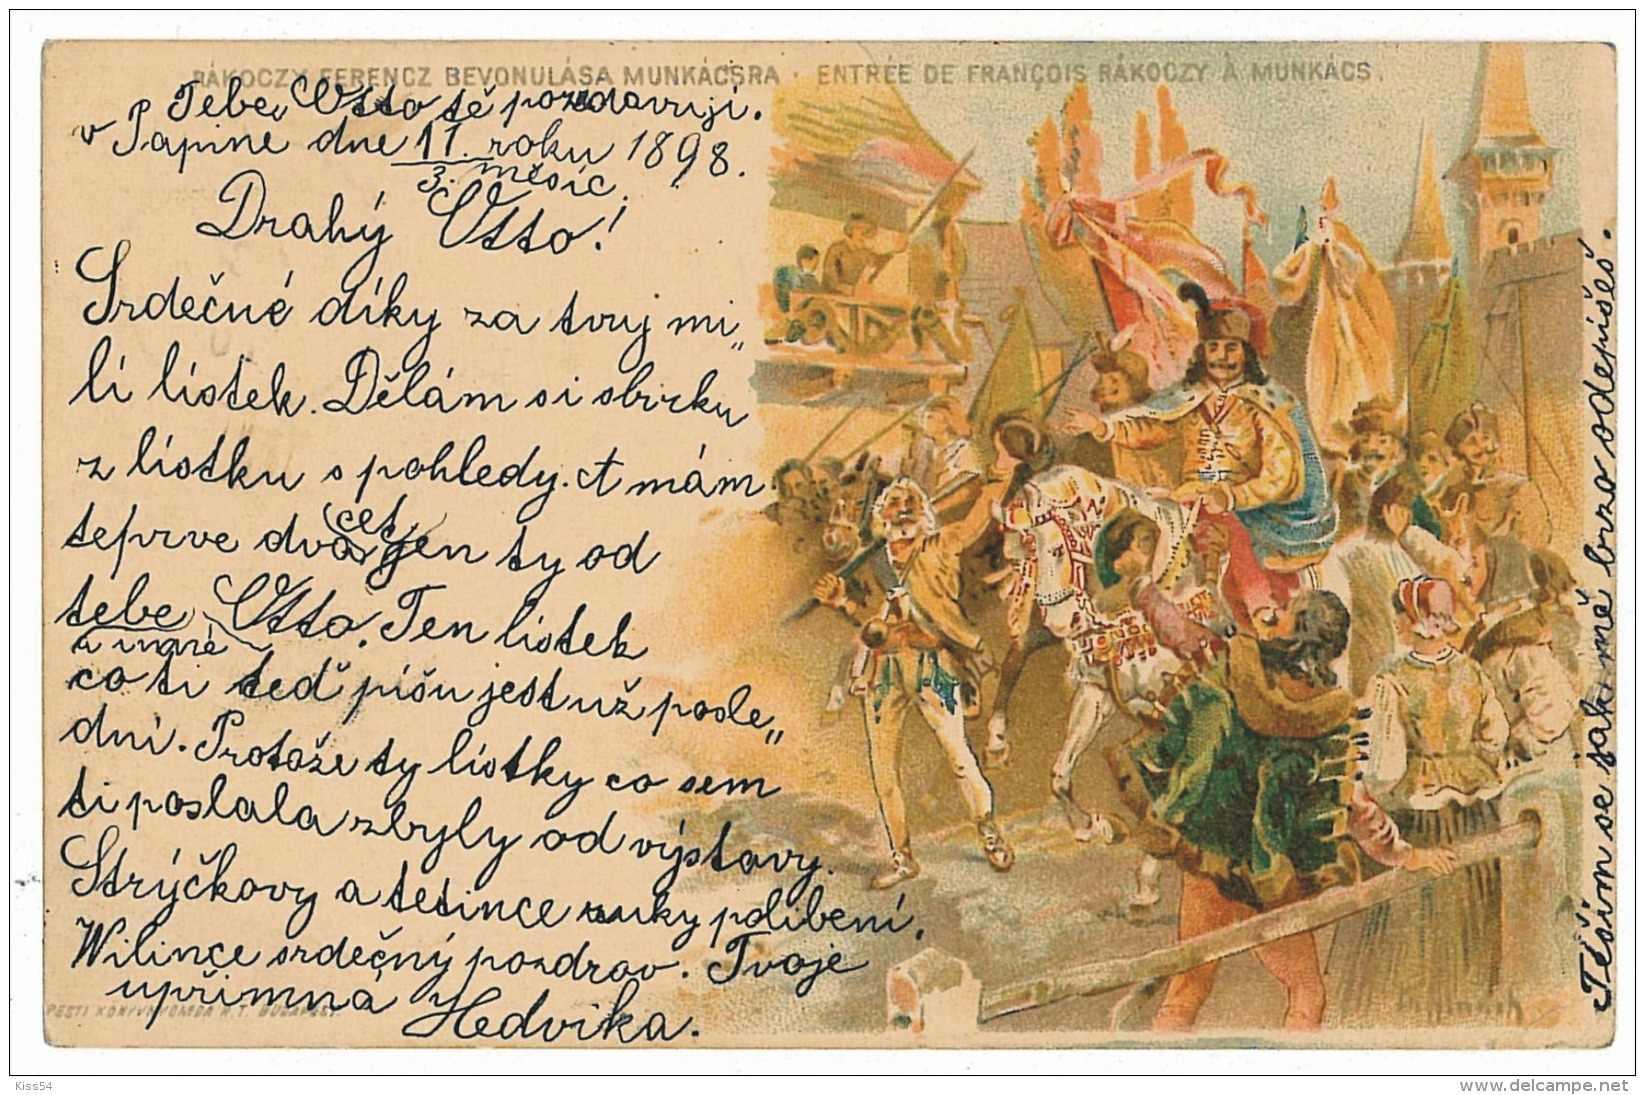 RÁKOCZY FERENCZ BEVONULÁSA MUNKÁCSRA · ENTRÉE DE FRANÇOIS RÁKOCZY À MUNKÁCS.
Tebe Otto tě pozdavuji.
v Papine dne 11. roku 1898.
3. měsíc.
Drahý Otto!
Srdečné díky za tvuj mi„
lí lístek. Dělám si sbirku
z lístku s pohledy. A mám
teprve dva cet jen ty od
tebe Otto. Ten lístek
z
co ti teď píšu jest už posle„
dní. Protože ty lístky co sem
ti poslala zbyly od výstavy.
Strýčkovy a tetince ruky políbení.
Wilince srdečný pozdrav. Tvoje
upřimná Hedvika.
PESTI KÖNYVNYOMDA R. T. BUDAPEST.
Těším se jak mě brzo odepíšeš.
Kiss54
delcampe.net